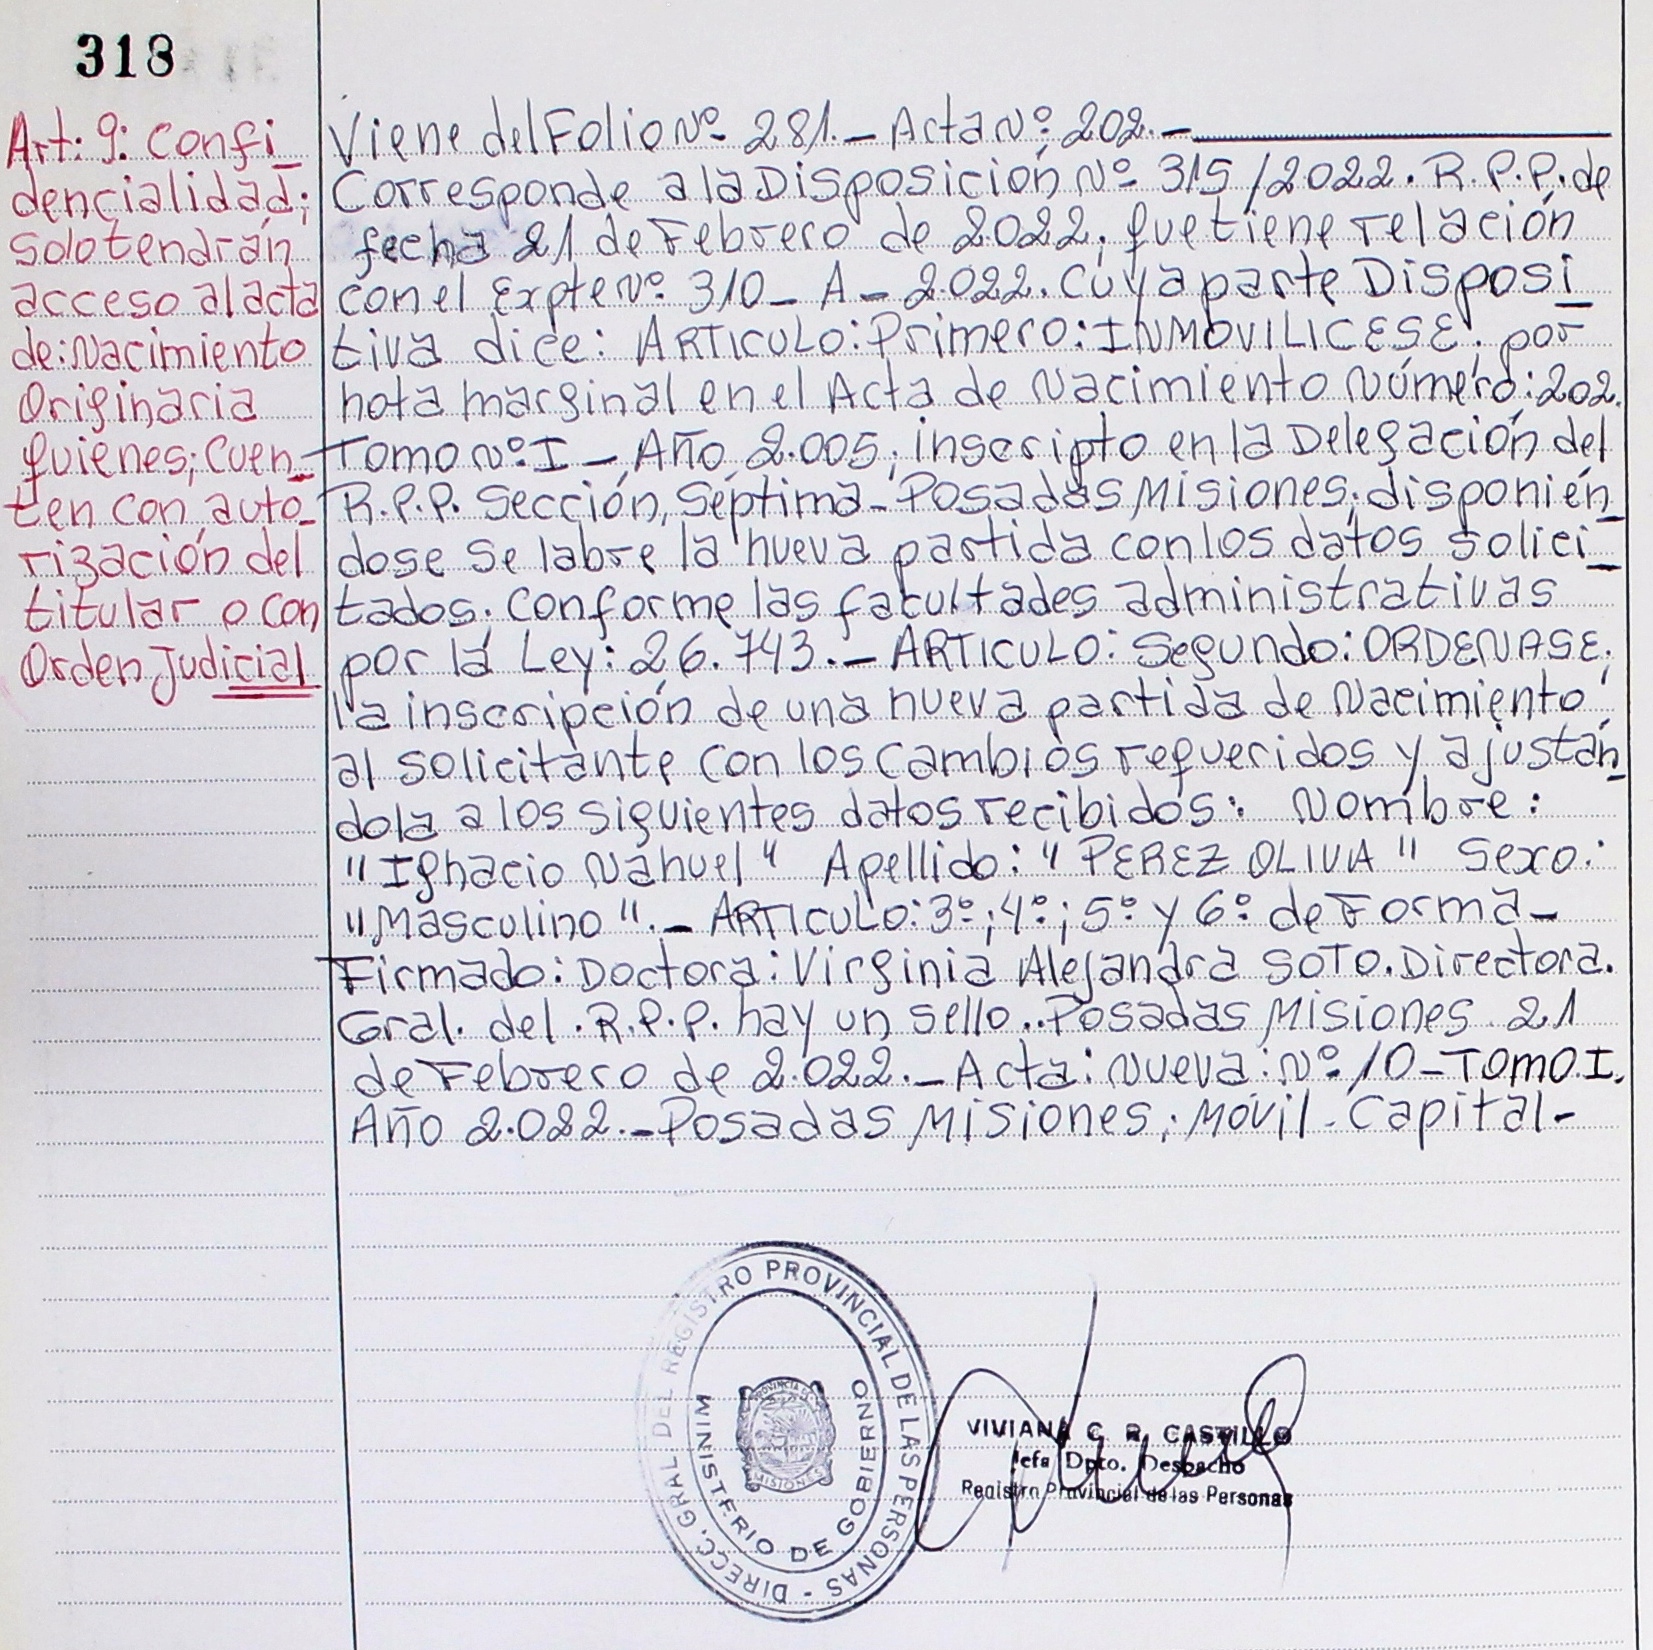 318
Art: 9: Confi_
dencialidad;
solo tendrán
acceso al acta
de: Nacimiento
Originaria
quienes; Cuen_
ten con auto_
rización del
titular o con
Orden Judicial
Viene del Folio Nº 281._ Acta Nº 202._
Corresponde a la Disposición Nº 315/2022. R.P.P. de
fecha 21 de Febrero de 2022, que tiene relación
con el Expte Nº 310_ A_ 2.022. Cuya parte Disposi_
tiva dice: ARTICULO: Primero: INMOVILICESE; por
nota marginal en el Acta de Nacimiento Número: 202.
Tomo Nº I_ Año 2.005; inscripto en la Delegación del
R.P.P. Sección, Séptima_ Posadas Misiones; disponién_
dose se labre la nueva partida con los datos solici_
tados; Conforme las facultades administrativas
por la Ley: 26.743._ ARTICULO: Segundo: ORDENASE;
la inscripción de una nueva partida de Nacimiento
al solicitante con los cambios requeridos y ajustán_
dola a los siguientes datos recibidos: Nombre:
"Ignacio Nahuel" Apellido: "PEREZ OLIVA" Sexo:
"Masculino"._ ARTICULO: 3º; 4º; 5º y 6º de Forma_
Firmado: Doctora: Virginia Alejandra SOTO. Directora.
Gral. del .R.P.P. hay un sello.. Posadas Misiones 21
de Febrero de 2.022._ Acta: Nueva: Nº 10_ Tomo I.
Año 2.022._ Posadas Misiones; Móvil_ Capital_
DIRECC. GRAL DEL REGISTRO PROVINCIAL DE LAS PERSONAS -
MINISTERIO DE GOBIERNO
PROVINCIA DE
MISIONES
VIVIANA C. R. CASTILLO
Jefa Dpto. Despacho
Registro Provincial de las Personas